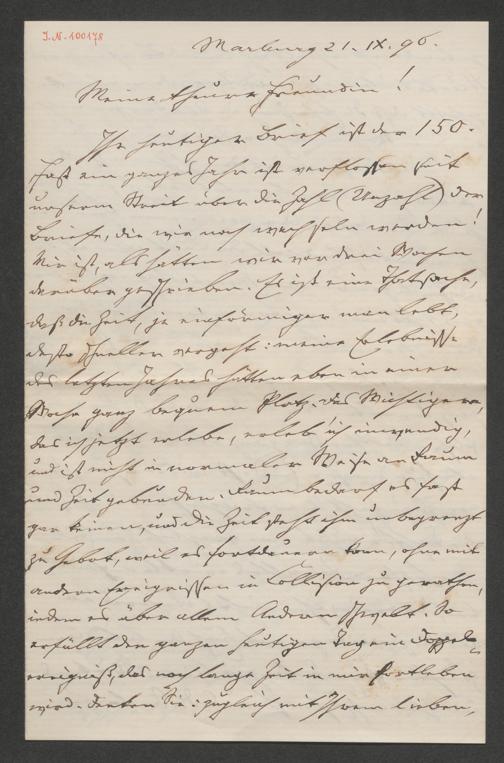 J.N. 100178
Marburg 21. IX. 96.
Meine theure Freundin!
Ihr heutiger Brief ist der 150.
Fast ein ganzes Jahr ist verflossen seit
unserem Streit über die Zahl (Unzahl) der
Briefe, die wir noch wechseln werden!
Mir ist, als hätten wir vor drei Wochen
darüber geschrieben. Es ist eine Thatsache,
daß die Zeit, je einförmiger man lebt,
desto schneller vergeht: meine Erlebnisse
des letzten Jahres hätten eben in einer
Woche ganz bequem Platz. Das Wichtigere,
das ich jetzt erlebe, erleb' ich inwendig,
und ist nicht in normaler Weise an Raum
und Zeit gebunden. Raum bedarf es fast
gar keinen, und die Zeit steht ihm unbegrenzt
zu Gebot, weil es fortdauern kann, ohne mit
andern Ereignissen in Collision zu gerathen,
indem es über allem Andern schwebt. So
erfüllt den ganzen heutigen Tag ein Doppel-
ereigniß, das noch lange Zeit in mir fortleben
wird. Denken Sie: zugleich mit Ihrem lieben,